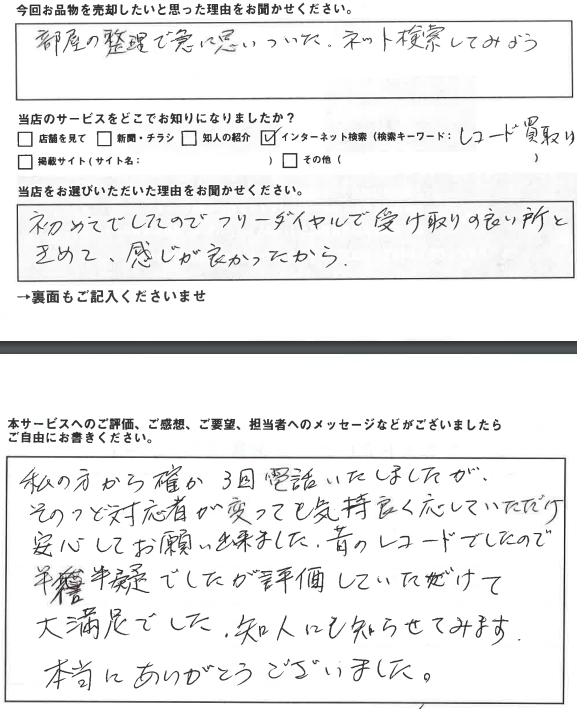 今回お品物を売却したいと思った理由をお聞かせください。
部屋の整理で急に思いついた. ネット検索してみよう
当店のサービスをどこでお知りになりましたか？
□ 店舗を見て □ 新聞・チラシ □ 知人の紹介 ☑ インターネット検索（検索キーワード： レコード買取り
□ 掲載サイト（サイト名： ） □ その他（ ）
当店をお選びいただいた理由をお聞かせください。
初めてでしたのでフリーダイヤルで受け取りの良い所と
きめて、感じが良かったから.
→裏面もご記入くださいませ
本サービスへのご評価、ご感想、ご要望、担当者へのメッセージなどがございましたら
ご自由にお書きください。
私の方から確か3回電話いたしましたが、
そのつど対応者が変っても気持良く応していただけ
安心してお願い出来ました. 昔のレコードでしたので
半 半疑でしたが評価していただけて
大満足でした. 知人にも知らせてみます.
本当にありがとうございました。